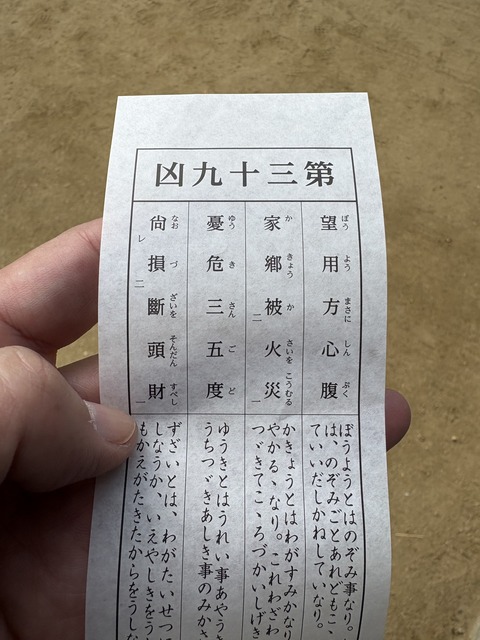 第三十九凶
望用方心腹
ぼう よう まさに しん ぷく
家鄉被二火災一
か きょう か さいを こうむる
憂危三五度
ゆう き さん ご ど
尙レ損二斷頭財一
なお づ ざいを そんだん すべし
ぼうようとはのぞみ事なり。
は、のぞみごとあれどもこゝ
ていいだしかねしていなり。
かきょうとはわがすみかなり
やかるゝなり。これわざわ
つゞきてこゝろづかいしげき
ゆうきとはうれい事あやうき
うちつゞきあしき事のみかさ
ずざいとは、わがたいせつに
しなうか、いえやしきをう
もかえがたきたからをうしな